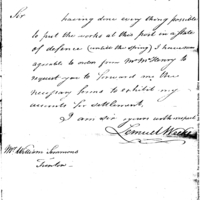 Sir
having done every thing possible
to put the works at this post in a state
of defence (until the Spring) I have now
agreeable to orders from Mr McHenry to
request you to forward me the
necessary forms to exhibit my
accounts for settlement.
I am Sir yours with respect
Lemuel
Mr William Simmons